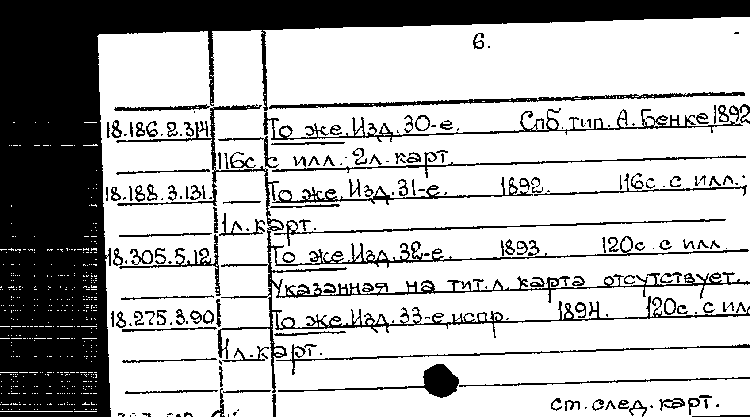 6.
18.186.2.314 То же. Изд. 30-е. Спб, тип. А. Бенке, 1892
116с. с илл.; 2л. карт.
18.188.3.131. То же. Изд. 31-е. 1892. 116с. с илл.;
1л. карт.
18.305.5.12 То же. Изд. 32-е. 1893. 120с. с илл
Указанная на тит. л. карта отсутствует.
18.275.3.90 То же. Изд. 33-е, испр. 1894. 120с. с ил
1л. карт.
см. след. карт.